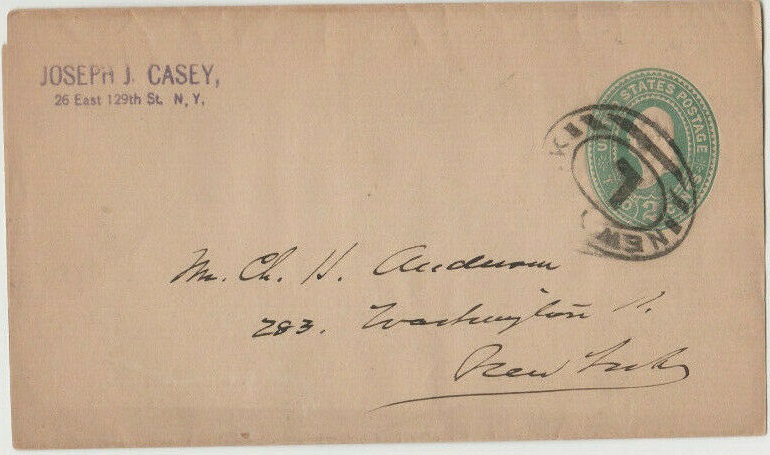 JOSEPH J. CASEY,
26 East 129th St. N, Y.
STATES POSTAGE
NEW
2
Mr. Ch. H. Anderson
283. Washington St.
New York